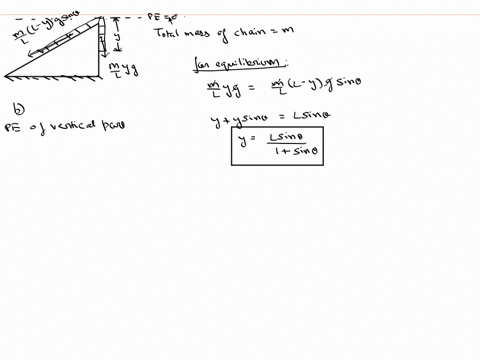 PE=0
m/L (L-y)g sinθ
y
m/L yg
Total mass of chain = m
for equilibrium:
m/L yg = m/L (L-y) g sinθ
y + y sinθ = L sinθ
y = L sinθ / 1 + sinθ
b)
PE of vertical part